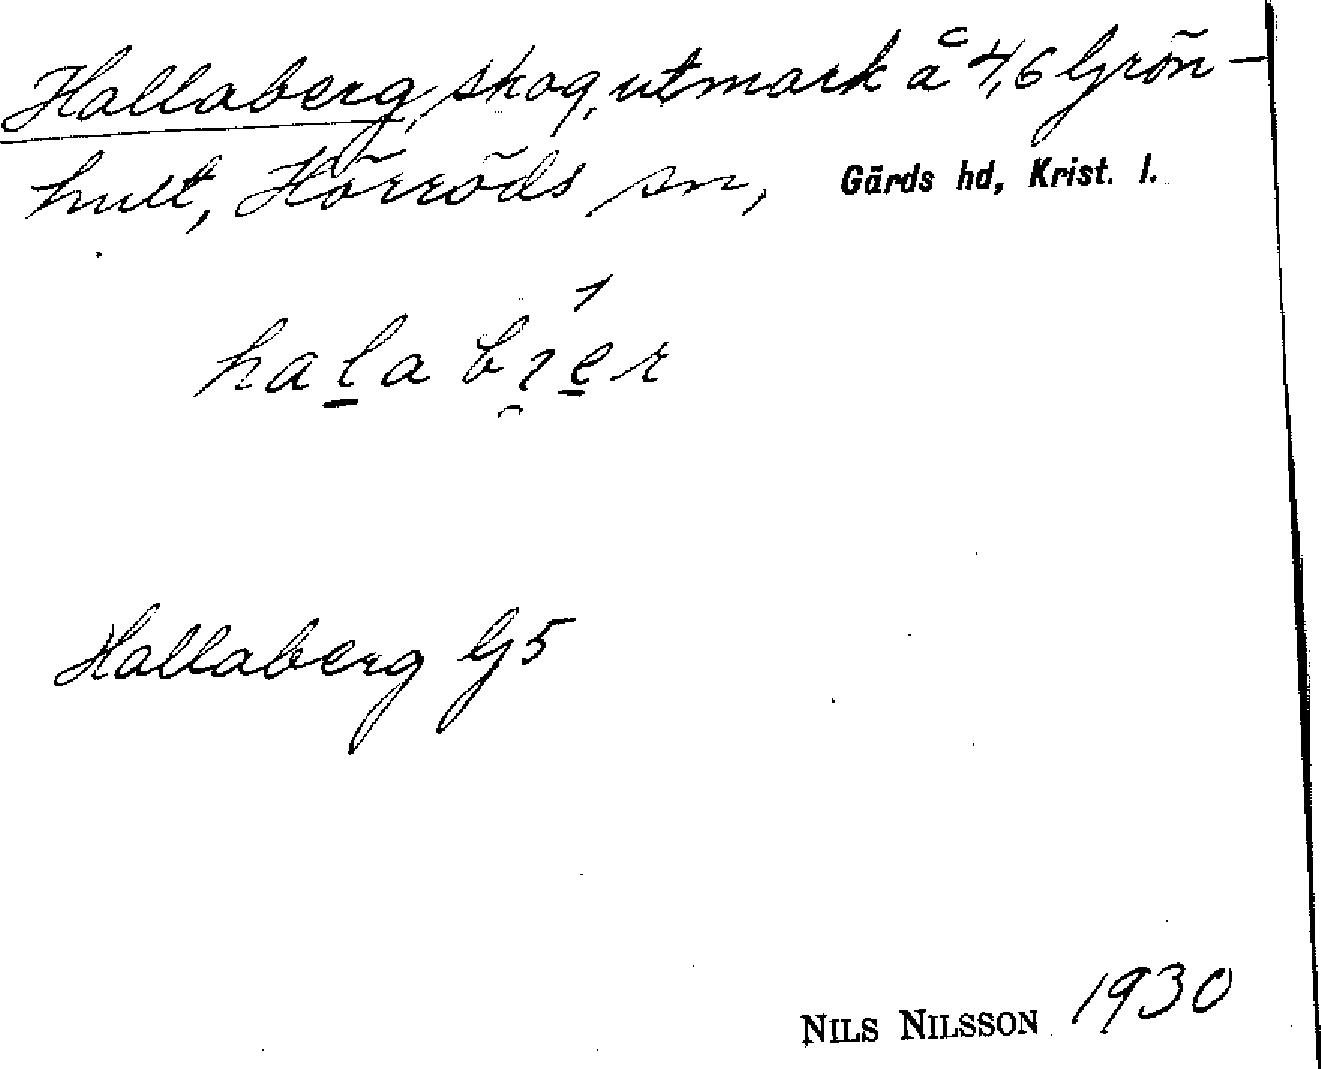 Hallaberg, skog, utmark å 4,6 Grön-
hult, Hörröds sn, Gärds hd, Krist. l.
Hallaberg G5
NILS NILSSON 1930